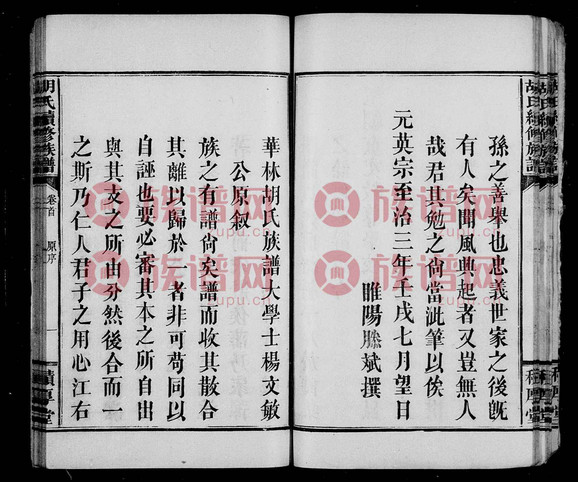 孫之善舉也忠義世家之後旣
有人矣聞風興起者又豈無人
哉君其勉之尙當泚筆以俟
元英宗至治三年壬戌七月望日
睢陽滕斌撰
華林胡氏族譜大學士楊文敏
公原敘
族之有譜尙矣譜而收其散合
其離以歸於一者非可苟同以
自誣也要必審其本之所自出
與其支之所由分然後合而一
之斯乃仁人君子之用心江右
胡氏續修族譜
卷首
原序
一
積厚堂
族谱网
zupu.cn